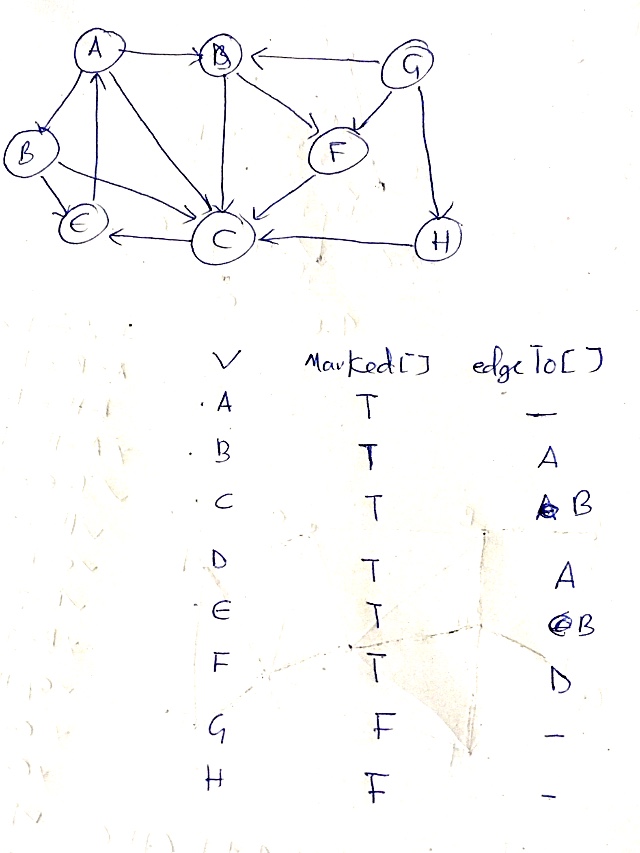 A
G
B
F
E
C
H
V Marked[] edgeTo[]
A T —
B T A
C T B
D T A
E T B
F T D
G F -
H F -